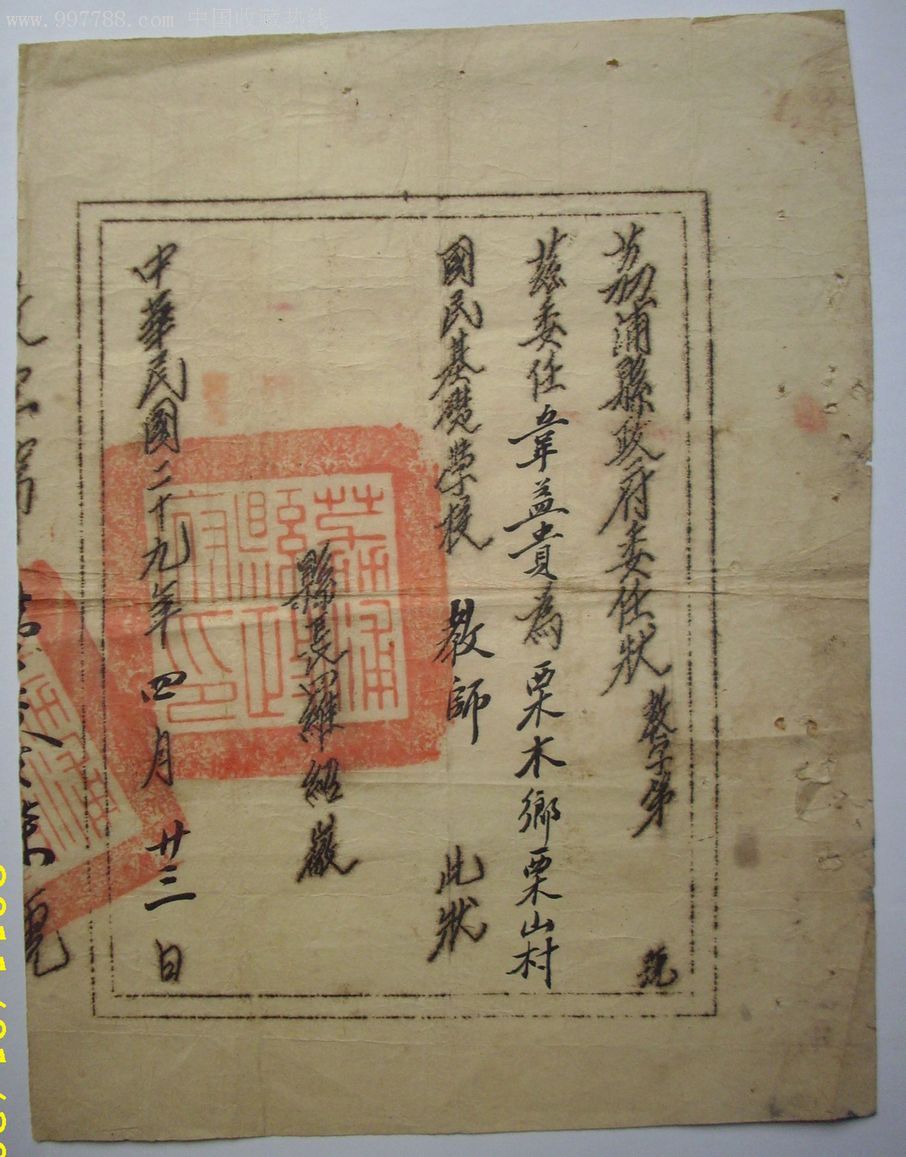 www.997788.com 中国收藏热线
荔浦縣政府委任狀 教字第 號
茲委任韋益貴為栗木鄉栗山村
國民基礎學校 教師 此狀
縣長羅紹徽
中華民國二十九年四月廿三日
荔浦
縣政
府印